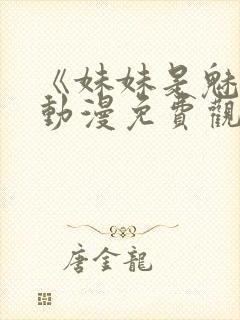 《妹妹是魅
動漫免費觀
唐金龍